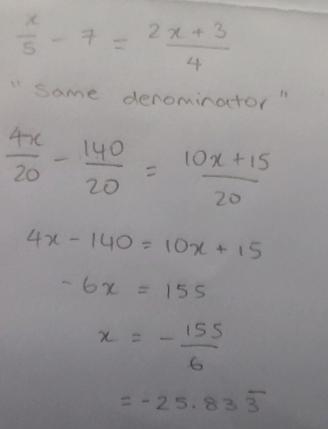 x/5 - 7 = (2x + 3)/4
"same denominator"
4x/20 - 140/20 = (10x + 15)/20
4x - 140 = 10x + 15
-6x = 155
x = - 155/6
= -25.833̅